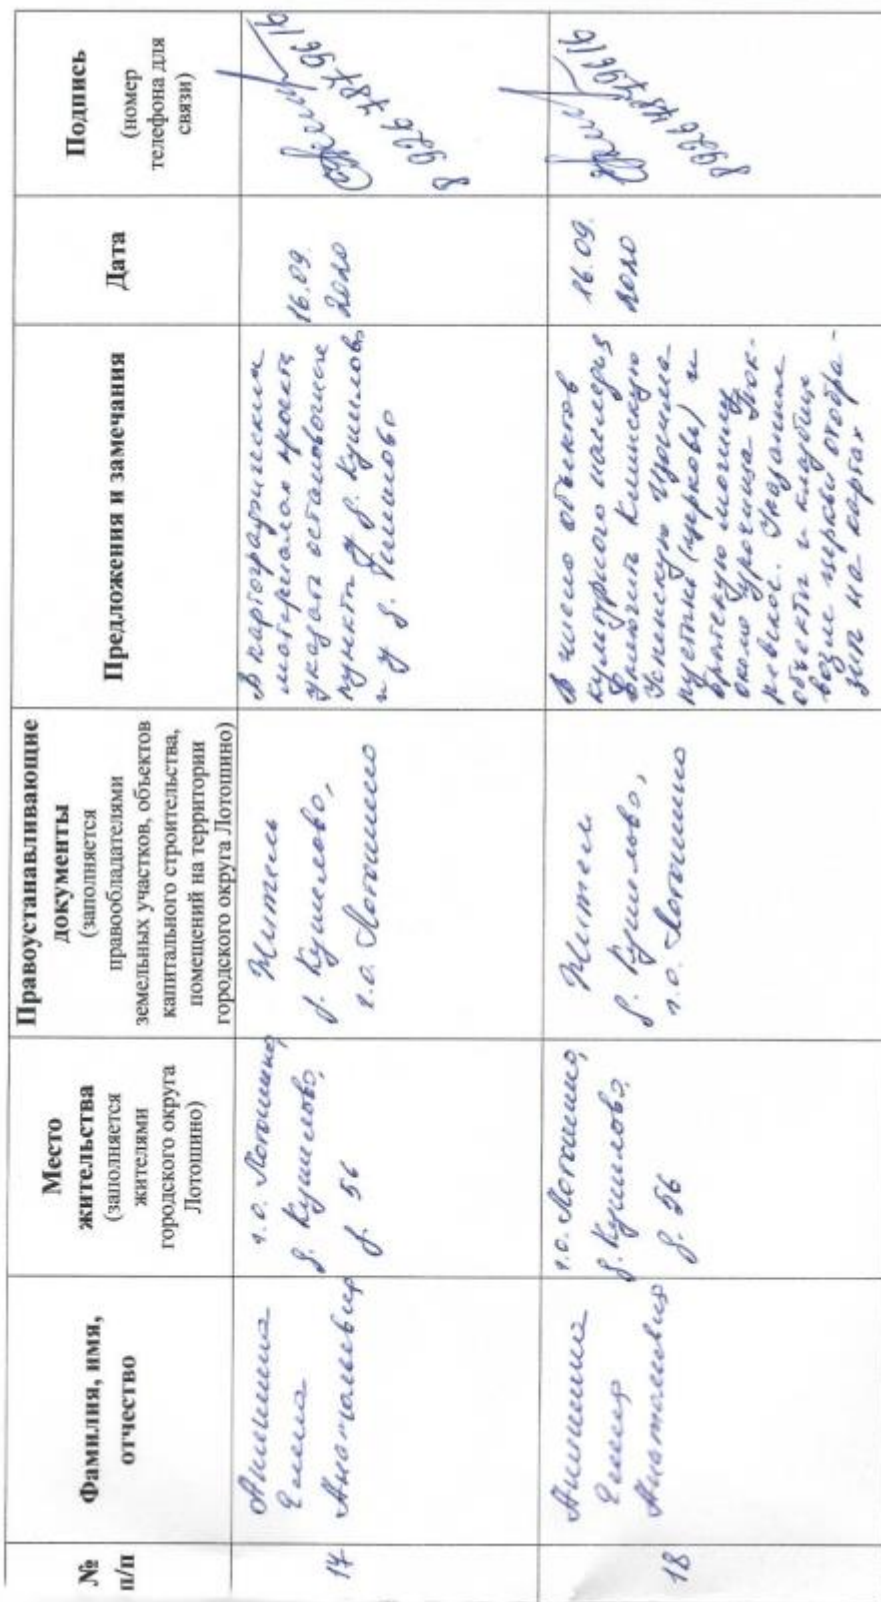 №
п/п
Фамилия, имя,
отчество
Место
жительства
(заполняется
жителями
городского округа
Лотошино)
Правоустанавливающие
документы
(заполняется
правообладателями
земельных участков, объектов
капитального строительства,
помещений на территории
городского округа Лотошино)
Предложения и замечания
Дата
Подпись
(номер
телефона для
связи)
17
Елена
Анатольевна
г.о. Лотошино,
д. Кушелово,
д. 56
Житель
д. Кушелово,
г.о. Лотошино
В картографических
материалах проекта
указать остановочные
пункты у д. Кушелово
и у д.
16.09.
2020
8 926 487 96 16
18
Елена
Анатольевна
г.о. Лотошино,
д. Кушелово,
д. 56
Житель
д. Кушелово,
г.о. Лотошино
В число объектов
культурного наследия
включить Клинскую
Успенскую
пустынь (церковь) и
братскую могилу
около урочища
Указанные
объекты и кладбище
возле церкви отобра-
зить на картах
16.09.
2020
8 926 487 96 16